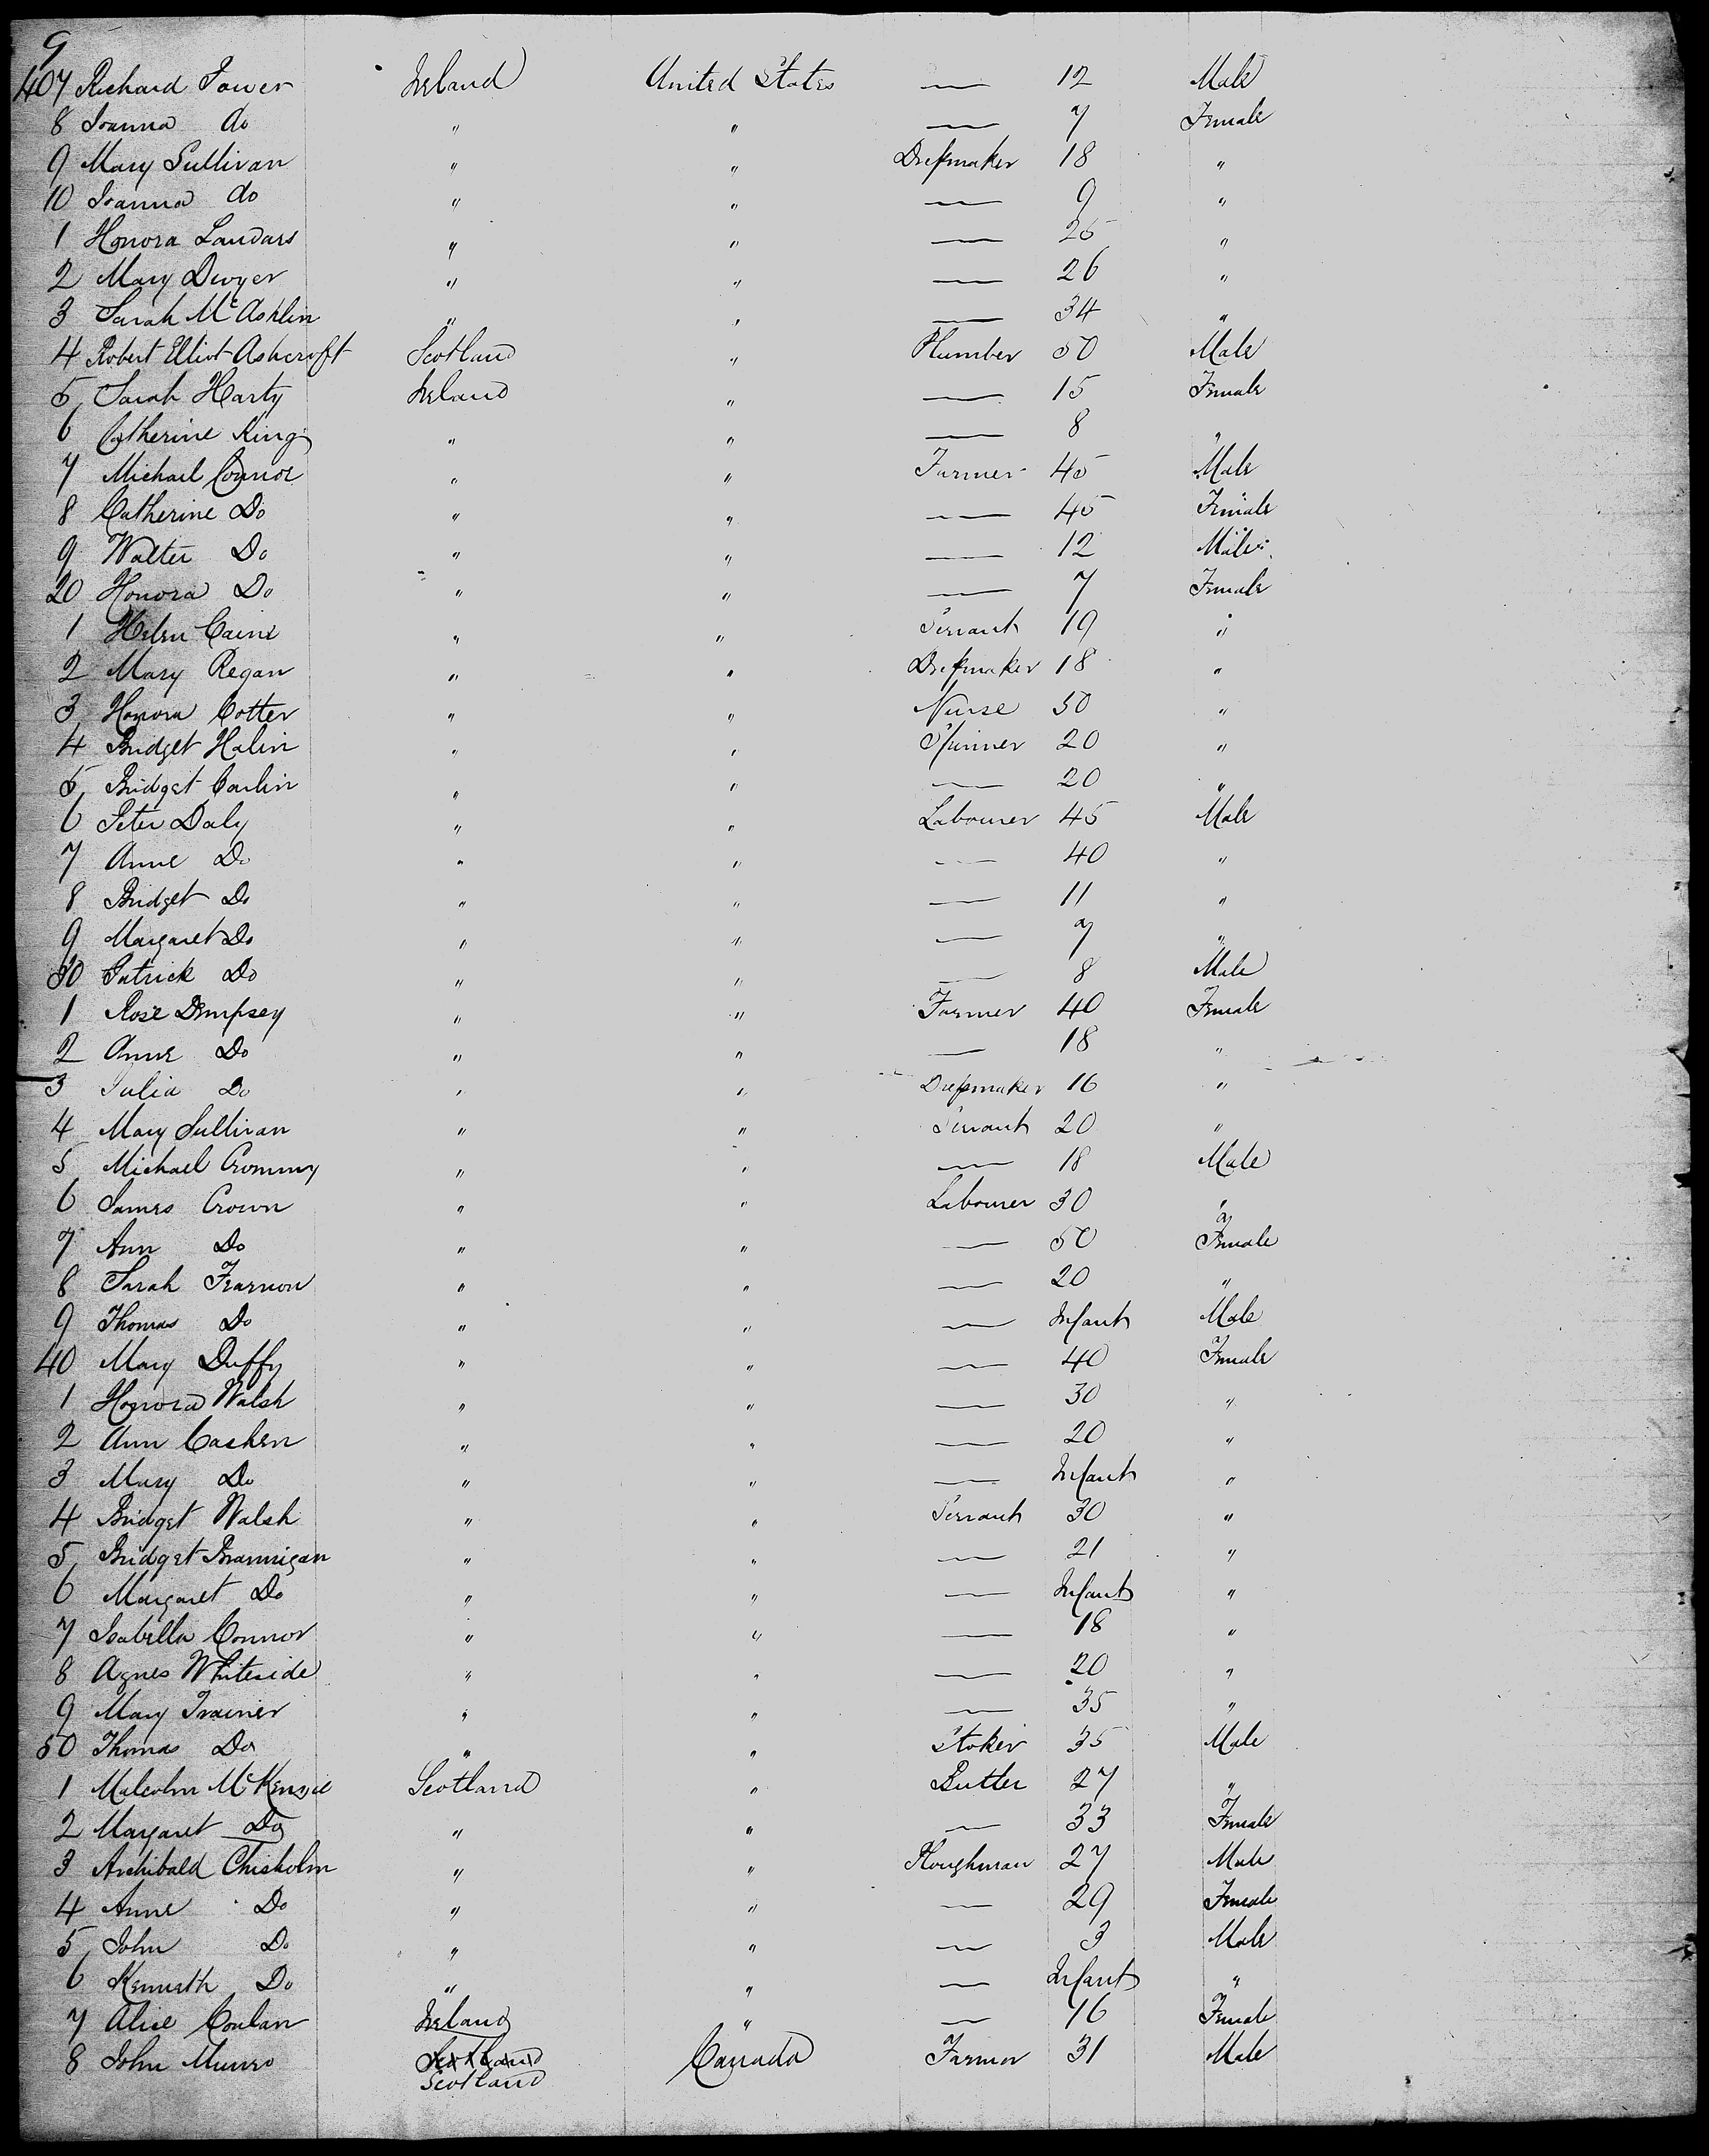 9
407 Richard Tower Ireland United States — 12 Male
8 Joanna do " " — 7 Female
9 Mary Sullivan " " Dressmaker 18 "
10 Joanna do " " — 9 "
1 Honora Landars " " — 25 "
2 Mary Dwyer " " — 26 "
3 Sarah McAshlin " " — 34 "
4 Robert Elliot Ashcroft Scotland " Plumber 50 Male
5 Sarah Harty Ireland " — 15 Female
6 Catherine King " " — 8 "
7 Michael Connor " " Farmer 45 Male
8 Catherine Do " " — 45 Female
9 Walter Do " " — 12 Male
20 Honora Do " " — 7 Female
1 Helen Caine " " Servant 19 "
2 Mary Regan " " Dressmaker 18 "
3 Honora Cotter " " Nurse 50 "
4 Bridget Halin " " Spinner 20 "
5 Bridget Carlin " " — 20 "
6 Peter Daly " " Labourer 45 Male
7 Anne Do " " — 40 "
8 Bridget Do " " — 11 "
9 Margaret Do " " — 9 "
30 Patrick Do " " — 8 Male
1 Rose Dempsey " " Farmer 40 Female
2 Anne Do " " — 18 "
3 Julia Do " " Dressmaker 16 "
4 Mary Sullivan " " Servant 20 "
5 Michael Crommy " " — 18 Male
6 James Crown " " Labourer 30 "
7 Ann Do " " — 50 Female
8 Sarah Frarnon " " — 20 "
9 Thomas Do " " — Infant Male
40 Mary Duffy " " — 40 Female
1 Honora Walsh " " — 30 "
2 Ann Cashen " " — 20 "
3 Mary Do " " — Infant "
4 Bridget Walsh " " Servant 30 "
5 Bridget Brannigan " " — 21 "
6 Margaret Do " " — Infant "
7 Isabella Connor " " — 18 "
8 Agnes Whiteside " " — 20 "
9 Mary Trainer " " — 35 "
50 Thomas Do " " Stoker 35 Male
1 Malcolm McKenzie Scotland " Butler 27 "
2 Margaret Do " " — 33 Female
3 Archibald Chisholm " " Ploughman 27 Male
4 Anne Do " " — 29 Female
5 John Do " " — 3 Male
6 Kenneth Do " " — Infant "
7 Alice Conlan Ireland " — 16 Female
8 John Munro Scotland Canada Farmer 31 Male
Scotland